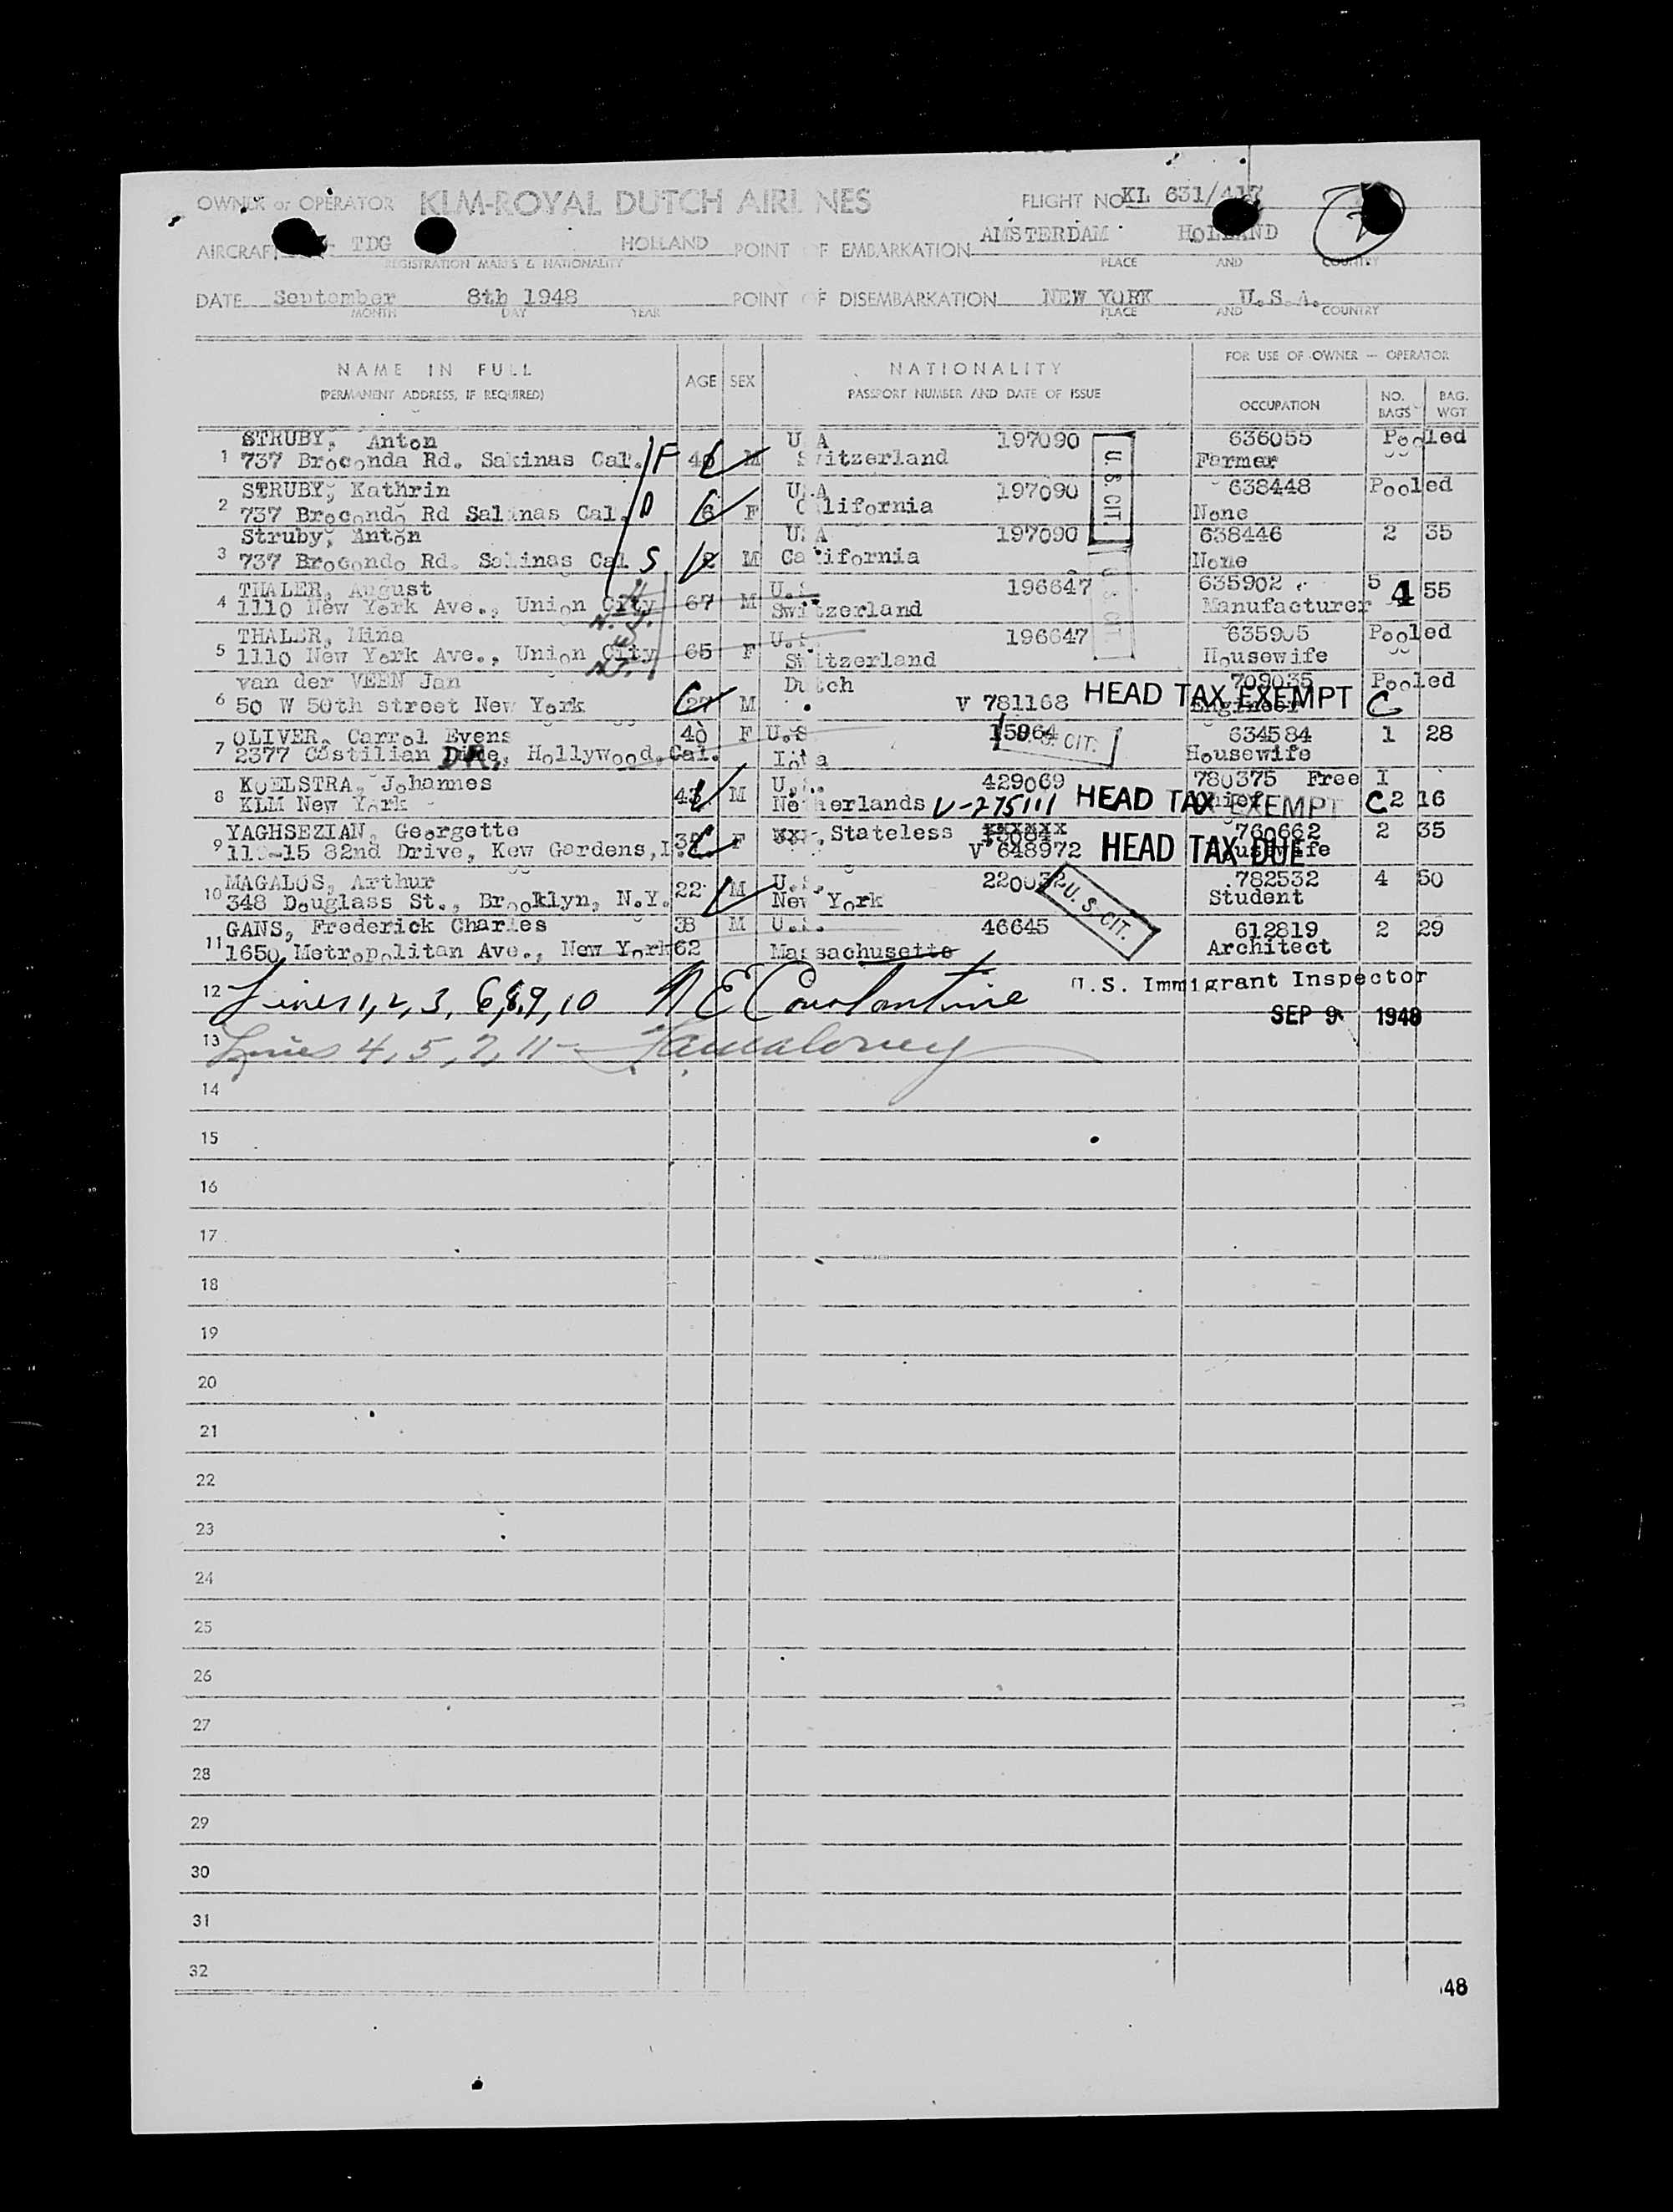 OWNER or OPERATOR KLM-ROYAL DUTCH AIRLINES FLIGHT NO KL 631/417
AIRCRAFT TDG HOLLAND POINT OF EMBARKATION AMSTERDAM HOLLAND
REGISTRATION MARKS & NATIONALITY PLACE AND COUNTRY
DATE September 8th 1948 POINT OF DISEMBARKATION NEW YORK U.S.A.
MONTH DAY YEAR PLACE AND COUNTRY
NAME IN FULL AGE SEX NATIONALITY FOR USE OF OWNER - OPERATOR
(PERMANENT ADDRESS, IF REQUIRED) PASSPORT NUMBER AND DATE OF ISSUE OCCUPATION NO. BAGS BAG. WGT
STRUBY, Anton U A 197090 636055 Pooled
1 737 Broconda Rd. Sakinas Cal. F M Switzerland Farmer
U.S. CIT.
STRUBY, Kathrin U.A 197090 638448 Pooled
2 737 Brocondo Rd Salinas Cal. D 6 F California None
Struby, Anton U. A 197090 638446 2 35
3 737 Brocondo Rd. Salinas Cal S M California None
THALER, August U.S. 196647 635902 5 4 55
4 1110 New York Ave., Union City N.J. 67 M Switzerland Manufacturer
THALER, Mina U.S. 196647 635905 Pooled
5 1110 New York Ave., Union City N.J. 65 F Switzerland Housewife
van der VEEN Jan Dutch 709035 Pooled
6 50 W 50th street New York 27 M V 781168 HEAD TAX EXEMPT Engineer C
OLIVER, Carrol Evens 40 F U.S 15964 U.S. CIT. 634584 1 28
7 2377 Castilian DR., Hollywood, Cal. Iowa Housewife
KOELSTRA, Johannes U.S. 429069 780375 Free 1
8 KLM New York M Netherlands V-275111 HEAD TAX EXEMPT Chief C 2 16
YAGHSEZIAN, Georgette Stateless xxxxxx 760662 2 35
9 -15 82nd Drive, Kew Gardens, F V 648972 HEAD TAX DUE Housewife
MAGALOS, Arthur U.S. 220032 U.S. CIT. 782532 4 50
10 348 Douglass St., Brooklyn, N.Y. 22 M New York Student
GANS, Frederick Charles 38 M U.S. 46645 612819 2 29
11 1650 Metropolitan Ave., New York 62 Massachusetts Architect
12 Lines 1, 2, 3, 6, 8, 9, 10 N E Constantine U.S. Immigrant Inspector
SEP 9 1948
13 Lines 4, 5, 7, 11 -
14
15
16
17
18
19
20
21
22
23
24
25
26
27
28
29
30
31
32
48